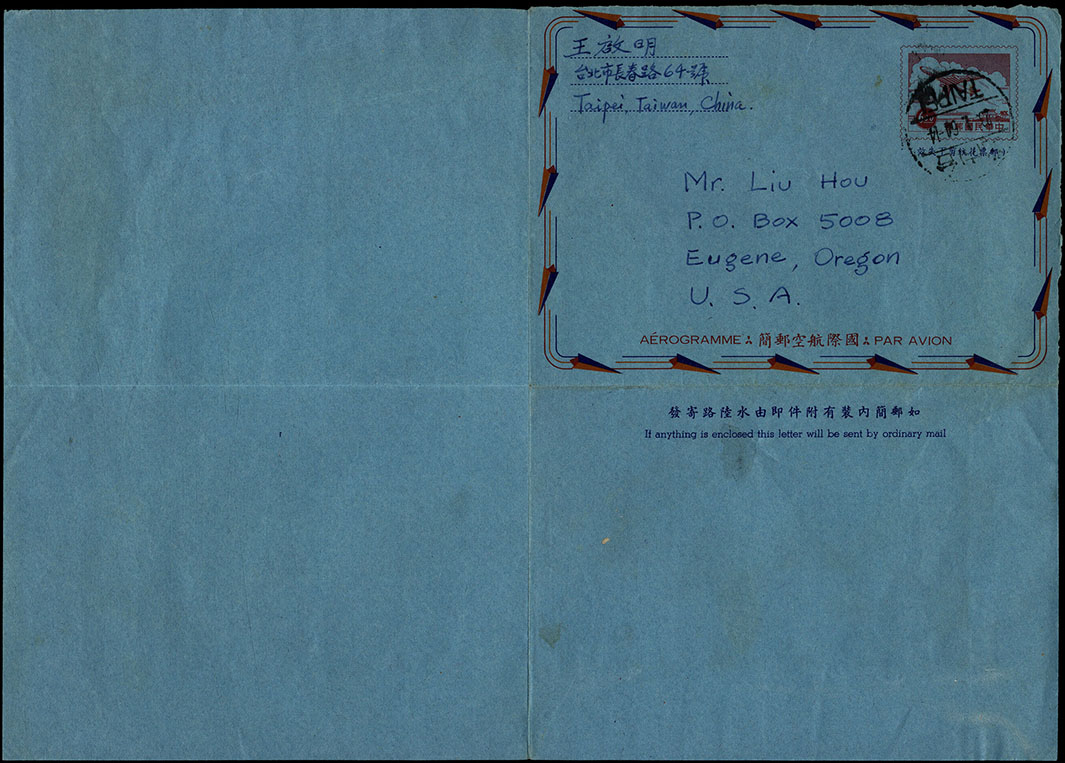 王啟明
台北市長春路64號
Taipei, Taiwan, China.
中華民國郵票
TAIPEI
Mr. Liu Hou
P.O. Box 5008
Eugene, Oregon
U. S. A.
AÉROGRAMME 簡郵空航際國 PAR AVION
發寄路陸水由即件附有裝內簡郵如
If anything is enclosed this letter will be sent by ordinary mail